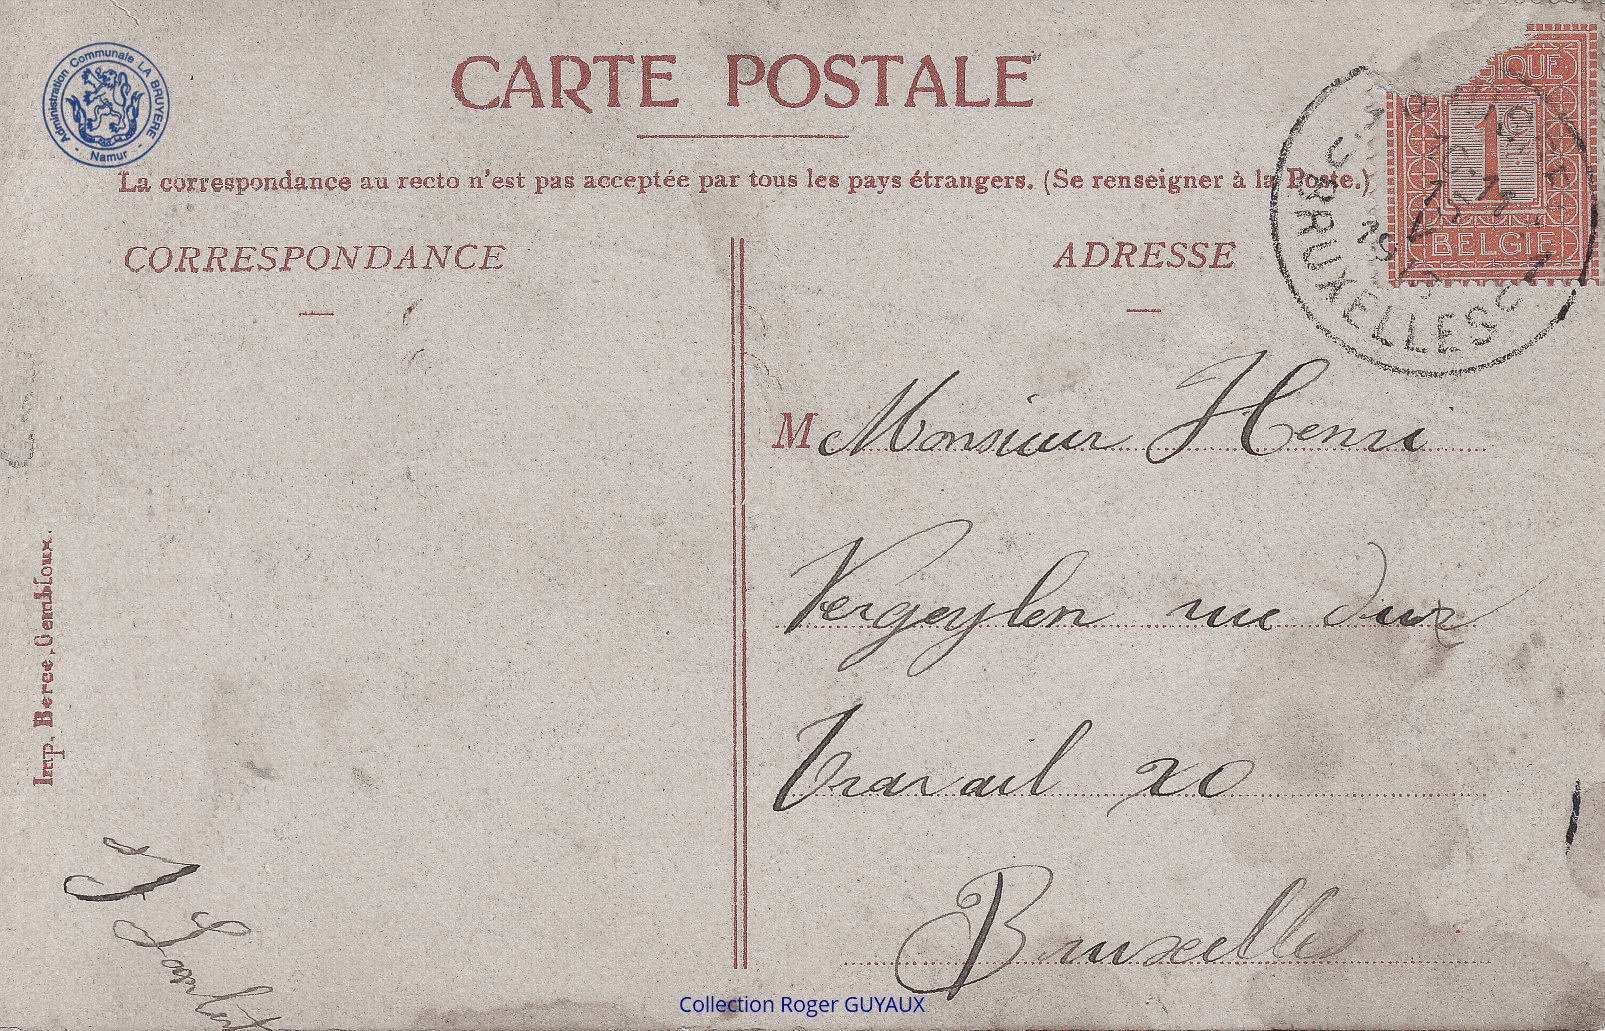 Administration Communale LA BRUYERE
- Namur -
CARTE POSTALE
La correspondance au recto n'est pas acceptée par tous les pays étrangers. (Se renseigner à la Poste.)
CORRESPONDANCE
ADRESSE
GIQUE
1
BELGIE
BRUXELLES
M Monsieur Henri
Vergeylen rue dux
Travail 20
Bruxelles
Imp. Berce, Gembloux.
Collection Roger GUYAUX